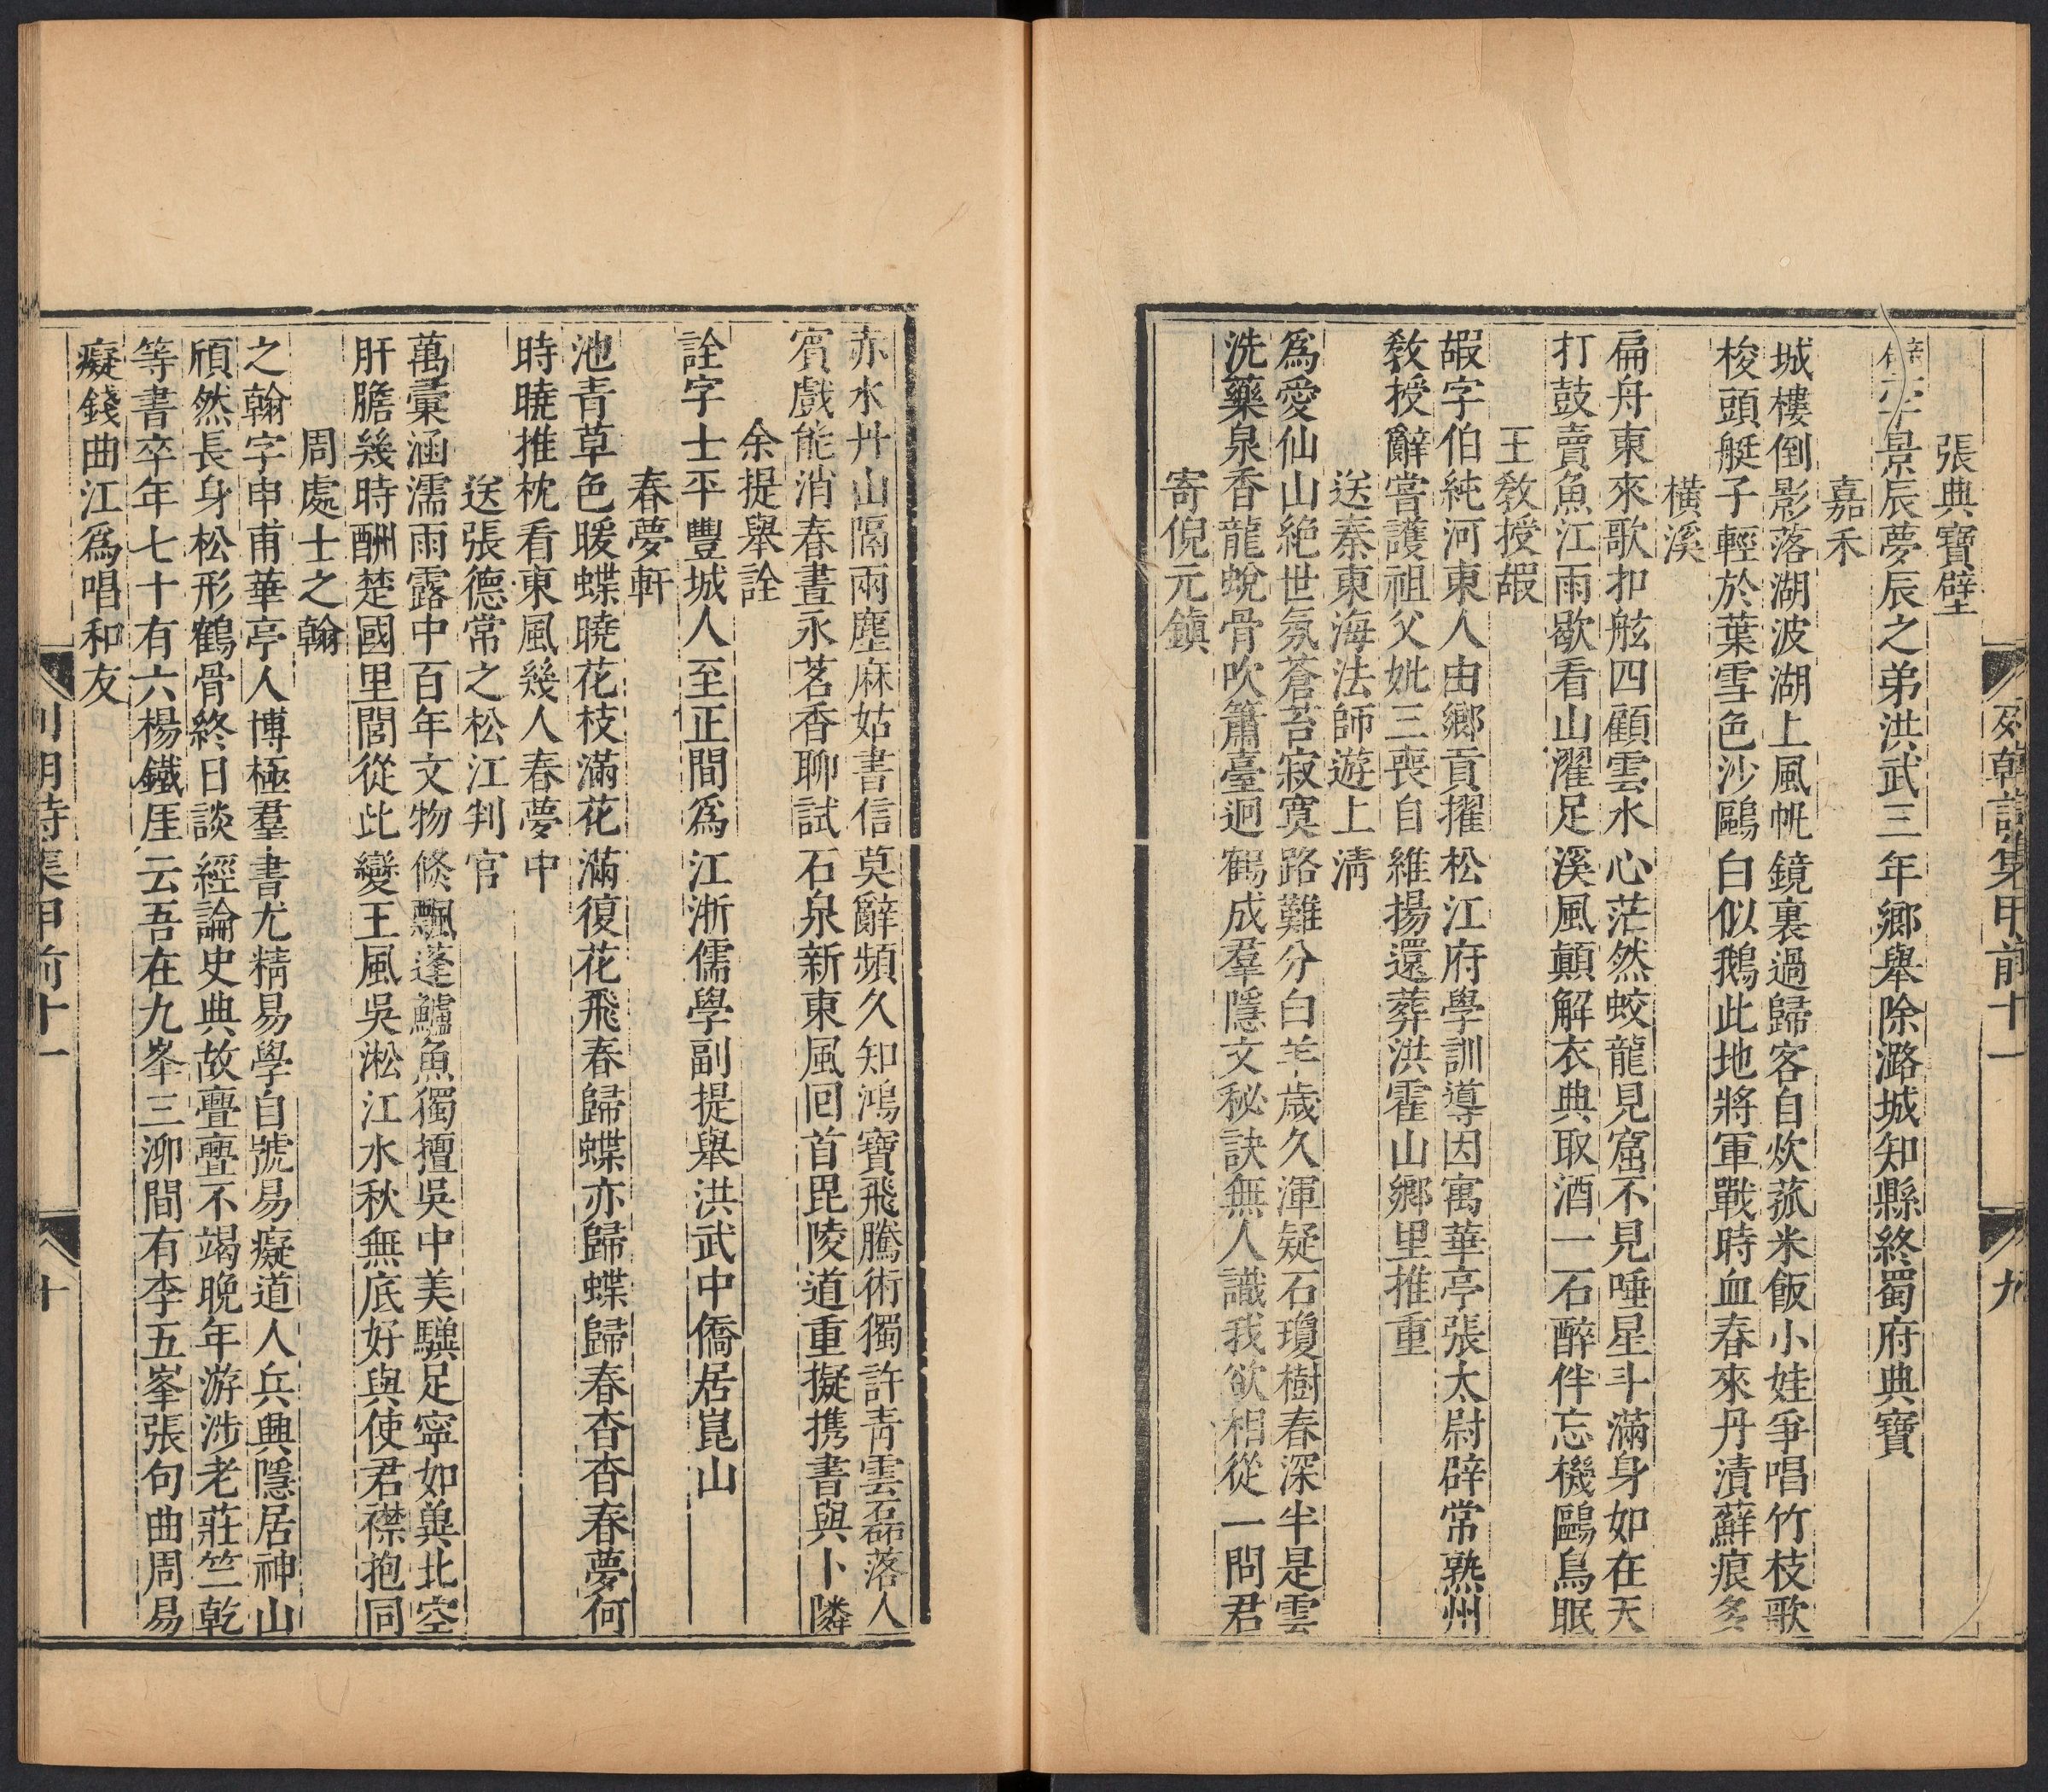 張典寶璧
字景辰夢辰之弟洪武三年鄉舉除潞城知縣終蜀府典寶
嘉禾
城樓倒影落湖波湖上風帆鏡裏過歸客自炊菰米飯小娃爭唱竹枝歌
梭頭艇子輕於葉雪色沙鷗白似鵝此地將軍戰時血春來丹漬蘚痕多
橫溪
扁舟東來歌扣舷四顧雲水心茫然蛟龍見窟不見唾星斗滿身如在天
打鼓賣魚江雨歇看山濯足溪風顛解衣典取酒一石醉伴忘機鷗鳥眠
王敎授嘏
嘏字伯純河東人由鄉貢擢松江府學訓導因寓華亭張太尉辟常熟州
敎授辭嘗護祖父妣三喪自維揚還葬洪霍山鄉里推重
送秦東海法師遊上淸
爲愛仙山絶世氛蒼苔寂寞路難分白羊歲久渾疑石瓊樹春深半是雲
洗藥泉香龍蛻骨吹簫臺迥鶴成羣隱文秘訣無人識我欲相從一問君
寄倪元鎮
列朝詩集甲前十一
九
赤水丹山隔兩塵麻姑書信莫辭頻久知鴻寶飛騰術獨許靑雲磊落人
賓戲能消春晝永茗香聊試石泉新東風回首毘陵道重擬携書與卜隣
余提舉詮
詮字士平豐城人至正間爲江浙儒學副提舉洪武中僑居崑山
春夢軒
池青草色暖蝶曉花枝滿花滿復花飛春歸蝶亦歸蝶歸春杳杳春夢何
時曉推枕看東風幾人春夢中
送張德常之松江判官
萬彙涵濡雨露中百年文物倐飄蓬鱸魚獨擅吳中美驥足寧如冀北空
肝膽幾時酬楚國里閭從此變王風吳淞江水秋無底好與使君襟抱同
周處士之翰
之翰字申甫華亭人博極羣書尤精易學自號易癡道人兵興隱居神山
頎然長身松形鶴骨終日談經論史典故亹亹不竭晚年游涉老莊竺乾
等書卒年七十有六楊鐵厓云吾在九峯三泖間有李五峯張句曲周易
癡錢曲江爲唱和友
列朝詩集甲前十一
十